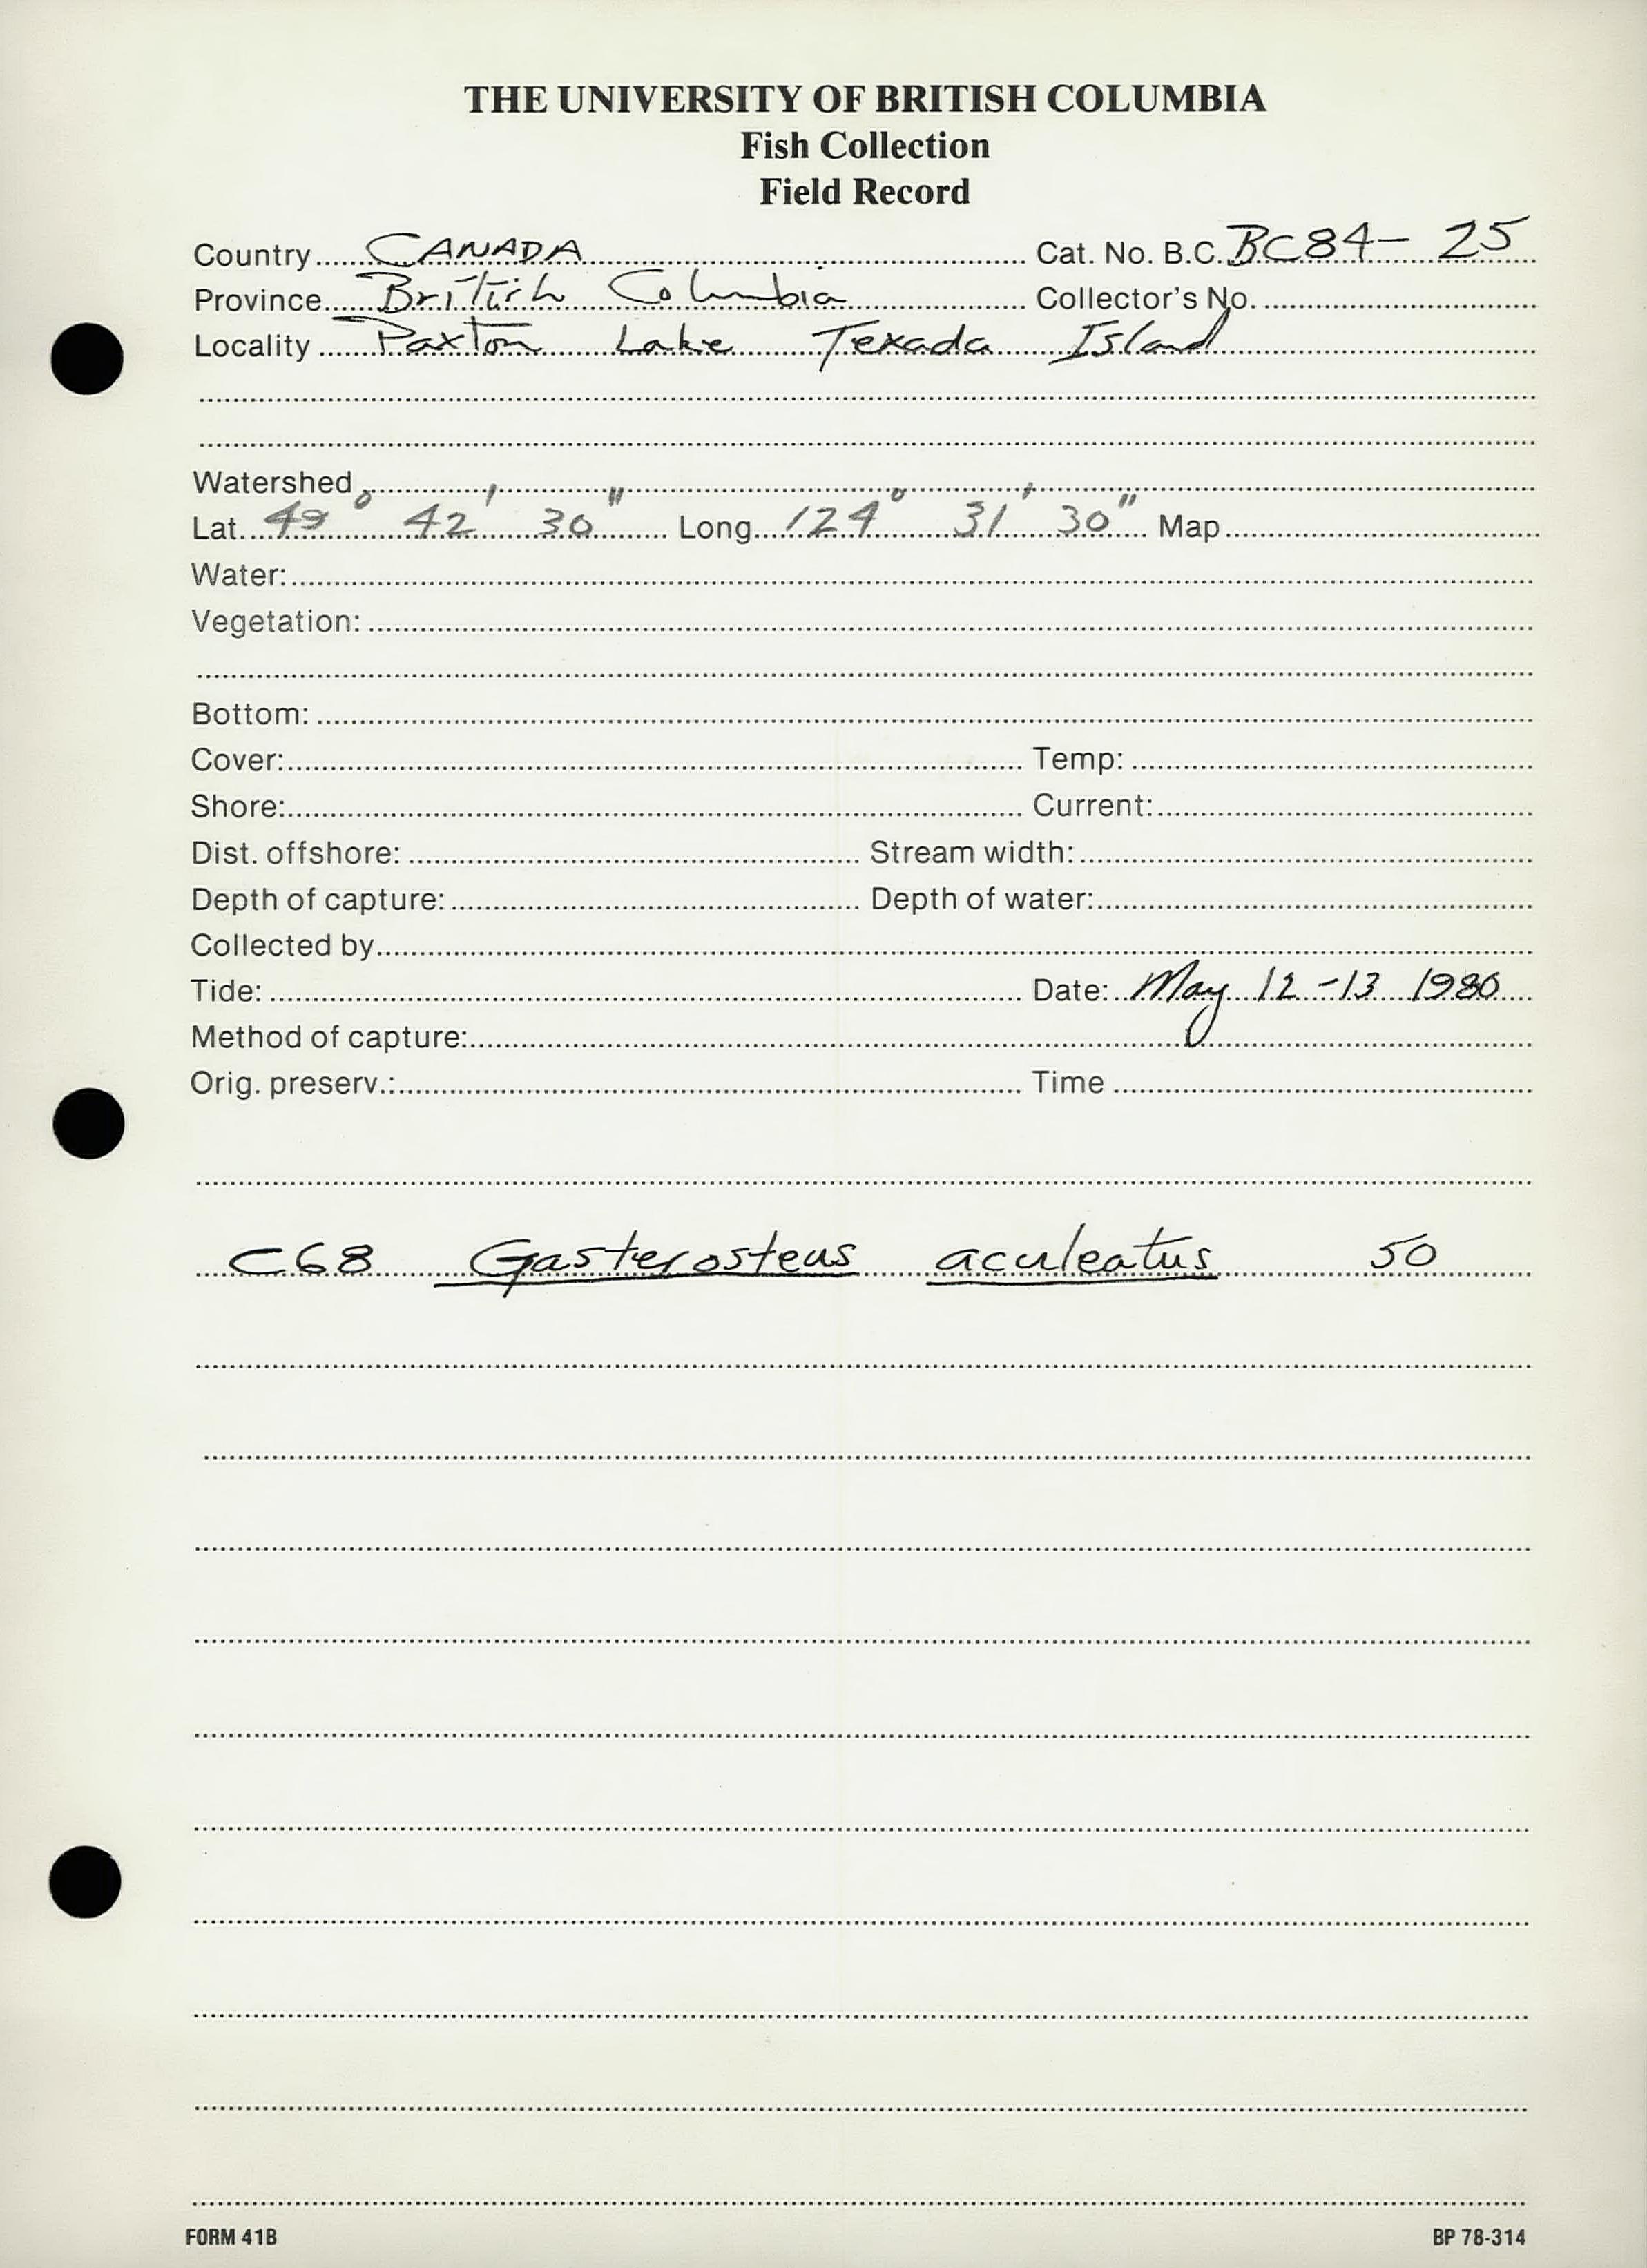 THE UNIVERSITY OF BRITISH COLUMBIA
Fish Collection
Field Record
Country CANADA Cat. No. B.C. BC84-25
Province British Columbia Collector's No.
Locality Paxton Lake Texada Island
Watershed
Lat. 49° 42' 30" Long. 124° 31' 30" Map
Water:
Vegetation:
Bottom:
Cover: Temp:
Shore: Current:
Dist. offshore: Stream width:
Depth of capture: Depth of water:
Collected by
Tide: Date: May 12-13 1980
Method of capture:
Orig. preserv.: Time
C68 Gasterosteus aculeatus 50
FORM 41B BP 78-314